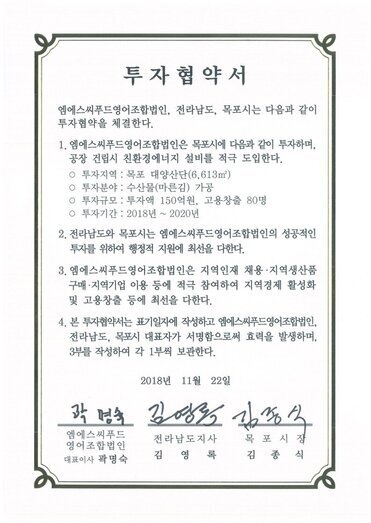 투자협약서
엠에스씨푸드영어조합법인, 전라남도, 목포시는 다음과 같이
투자협약을 체결한다.
1. 엠에스씨푸드영어조합법인은 목포시에 다음과 같이 투자하며,
공장 건립시 친환경에너지 설비를 적극 도입한다.
○ 투자지역 : 목포 대양산단(6,613㎡)
○ 투자분야 : 수산물(마른김) 가공
○ 투자규모 : 투자액 150억원, 고용창출 80명
○ 투자기간 : 2018년 ~ 2020년
2. 전라남도와 목포시는 엠에스씨푸드영어조합법인의 성공적인
투자를 위하여 행정적 지원에 최선을 다한다.
3. 엠에스씨푸드영어조합법인은 지역인재 채용·지역생산품
구매·지역기업 이용 등에 적극 참여하여 지역경제 활성화
및 고용창출 등에 최선을 다한다.
4. 본 투자협약서는 표기일자에 작성하고 엠에스씨푸드영어조합법인,
전라남도, 목포시 대표자가 서명함으로써 효력을 발생하며,
3부를 작성하여 각 1부씩 보관한다.
2018년 11월 22일
곽명숙 김영록 김종식
엠에스씨푸드 전라남도지사 목포시장
영어조합법인
대표이사 곽명숙 김영록 김종식